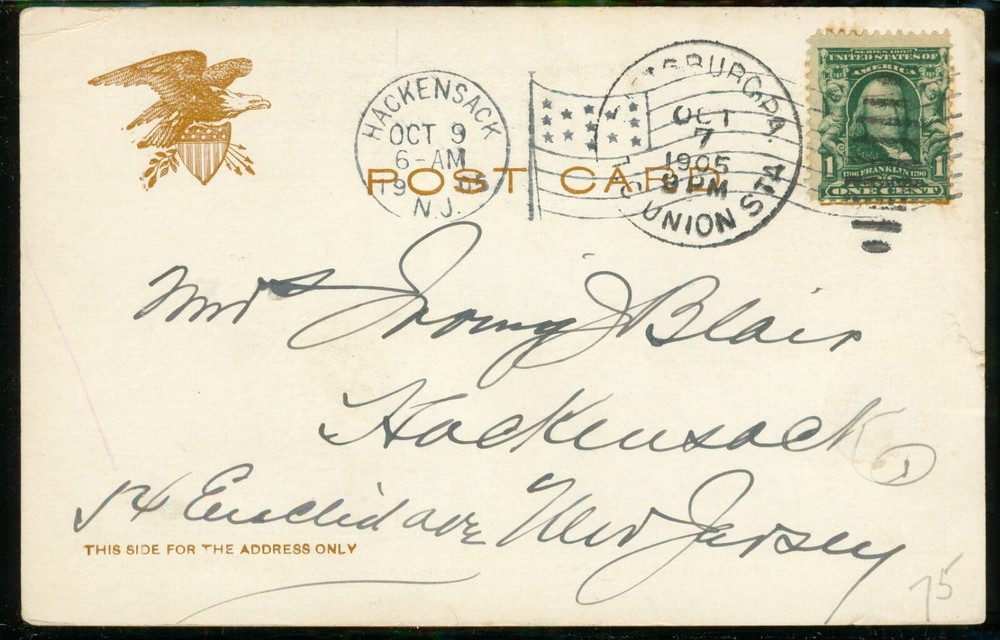 HACKENSACK
OCT 9
6-AM
19 05
N.J.
BURG, PA.
OCT
7
1905
9 PM
UNION STA
SERIES 1902
UNITED STATES OF
AMERICA
1 1
1706 FRANKLIN 1790
ONE CENT
POST CARD
Mrs J Blair
Hackensack
1
54 Euclid ave New Jersey
THIS SIDE FOR THE ADDRESS ONLY
75